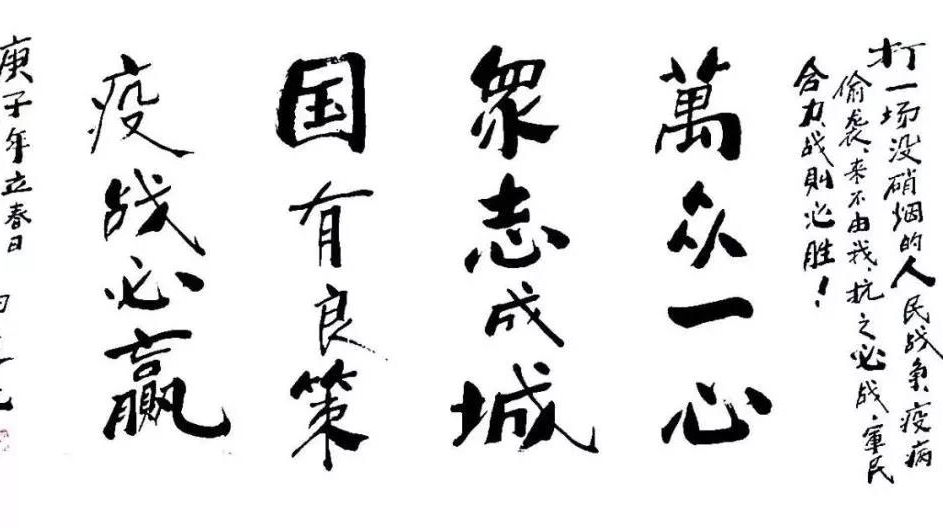 打一场没硝烟的人民战争、疫病
偷袭、来不由我、抗之必战、軍民
合力、战則必胜！
萬众一心
眾志成城
国有良策
疫战必赢
庚子年立春日